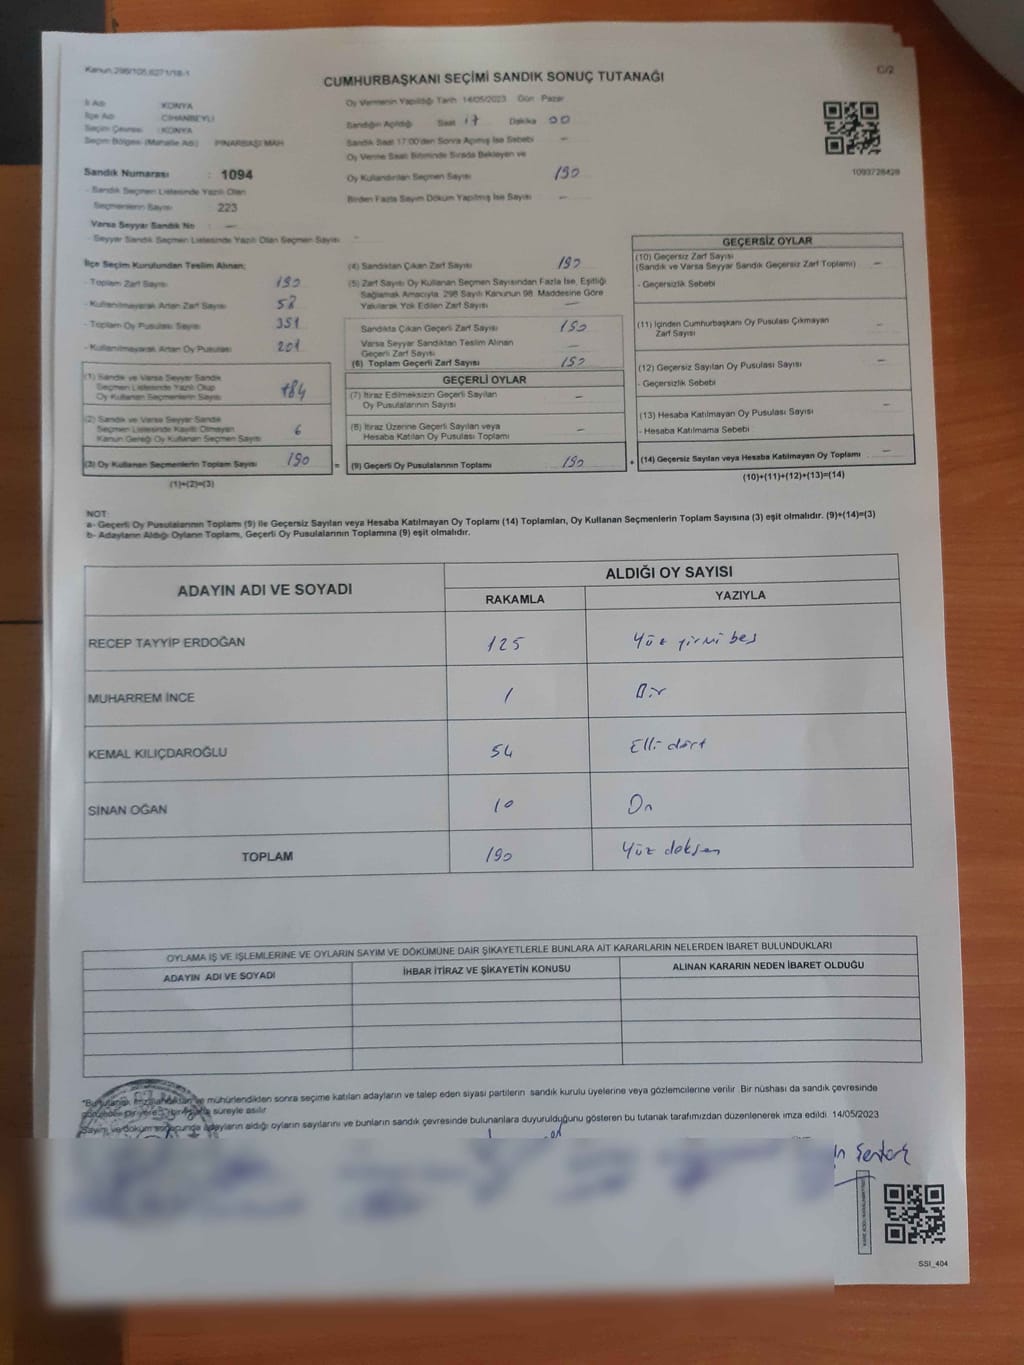 Kanun:298/105,6271/18-1
CUMHURBAŞKANI SEÇİMİ SANDIK SONUÇ TUTANAĞI
C/2
İl Adı : KONYA
İlçe Adı : CİHANBEYLİ
Seçim Çevresi : KONYA
Seçim Bölgesi (Mahalle Adı) : PINARBAŞI MAH
Sandık Numarası : 1094
- Sandık Seçmen Listesinde Yazılı Olan
Seçmenlerin Sayısı : 223
Varsa Seyyar Sandık No : —
- Seyyar Sandık Seçmen Listesinde Yazılı Olan Seçmen Sayısı : -
Oy Vermenin Yapıldığı Tarih 14/05/2023 Gün Pazar
Sandığın Açıldığı Saat 17 Dakika 00
Sandık Saat 17:00'den Sonra Açılmış İse Sebebi —
Oy Verme Saati Bitiminde Sırada Bekleyen ve
Oy Kullandırılan Seçmen Sayısı 190
Birden Fazla Sayım Döküm Yapılmış İse Sayısı —
1093728428
İlçe Seçim Kurulundan Teslim Alınan;
- Toplam Zarf Sayısı
- Kullanılmayarak Artan Zarf Sayısı
- Toplam Oy Pusulası Sayısı 351
- Kullanılmayarak Artan Oy Pusulası 201
(1) Sandık ve Varsa Seyyar Sandık
Seçmen Listesinde Yazılı Olup
Oy Kullanan Seçmenlerin Sayısı 184
(2) Sandık ve Varsa Seyyar Sandık
Seçmen Listesinde Kayıtlı Olmayan
Kanun Gereği Oy Kullanan Seçmen Sayısı 6
(3) Oy Kullanan Seçmenlerin Toplam Sayısı 190
(1)+(2)=(3)
(4) Sandıktan Çıkan Zarf Sayısı 190
(5) Zarf Sayısı Oy Kullanan Seçmen Sayısından Fazla İse, Eşitliği
Sağlamak Amacıyla, 298 Sayılı Kanunun 98. Maddesine Göre
Yakılarak Yok Edilen Zarf Sayısı —
Sandıkta Çıkan Geçerli Zarf Sayısı 190
Varsa Seyyar Sandıktan Teslim Alınan
Geçerli Zarf Sayısı —
(6) Toplam Geçerli Zarf Sayısı 190
GEÇERLİ OYLAR
(7) İtiraz Edilmeksizin Geçerli Sayılan
Oy Pusulalarının Sayısı —
(8) İtiraz Üzerine Geçerli Sayılan veya
Hesaba Katılan Oy Pusulası Toplamı —
= (9) Geçerli Oy Pusulalarının Toplamı 190
GEÇERSİZ OYLAR
(10) Geçersiz Zarf Sayısı
(Sandık ve Varsa Seyyar Sandık Geçersiz Zarf Toplamı) —
- Geçersizlik Sebebi
(11) İçinden Cumhurbaşkanı Oy Pusulası Çıkmayan
Zarf Sayısı —
(12) Geçersiz Sayılan Oy Pusulası Sayısı —
- Geçersizlik Sebebi
(13) Hesaba Katılmayan Oy Pusulası Sayısı —
- Hesaba Katılmama Sebebi
+ (14) Geçersiz Sayılan veya Hesaba Katılmayan Oy Toplamı —
(10)+(11)+(12)+(13)=(14)
NOT:
a- Geçerli Oy Pusulalarının Toplamı (9) ile Geçersiz Sayılan veya Hesaba Katılmayan Oy Toplamı (14) Toplamları, Oy Kullanan Seçmenlerin Toplam Sayısına (3) eşit olmalıdır. (9)+(14)=(3)
b- Adayların Aldığı Oyların Toplamı, Geçerli Oy Pusulalarının Toplamına (9) eşit olmalıdır.
ADAYIN ADI VE SOYADI
ALDIĞI OY SAYISI
RAKAMLA YAZIYLA
RECEP TAYYİP ERDOĞAN 125 Yüz yirmi beş
MUHARREM İNCE 1 Bir
KEMAL KILIÇDAROĞLU 54 Elli dört
SİNAN OĞAN 10 On
TOPLAM 190 Yüz doksan
OYLAMA İŞ VE İŞLEMLERİNE VE OYLARIN SAYIM VE DÖKÜMÜNE DAİR ŞİKAYETLERLE BUNLARA AİT KARARLARIN NELERDEN İBARET BULUNDUKLARI
ADAYIN ADI VE SOYADI İHBAR İTİRAZ VE ŞİKAYETİN KONUSU ALINAN KARARIN NEDEN İBARET OLDUĞU
*Bu tutanak imzalandıktan ve mühürlendikten sonra seçime katılan adayların ve talep eden siyasi partilerin sandık kurulu üyelerine veya gözlemcilerine verilir. Bir nüshası da sandık çevresinde
süreyle asılır.
Sayım ve döküm sonucunda adayların aldığı oyların sayılarını ve bunların sandık çevresinde bulunanlara duyurulduğunu gösteren bu tutanak tarafımızdan düzenlenerek imza edildi. 14/05/2023
SSI_404